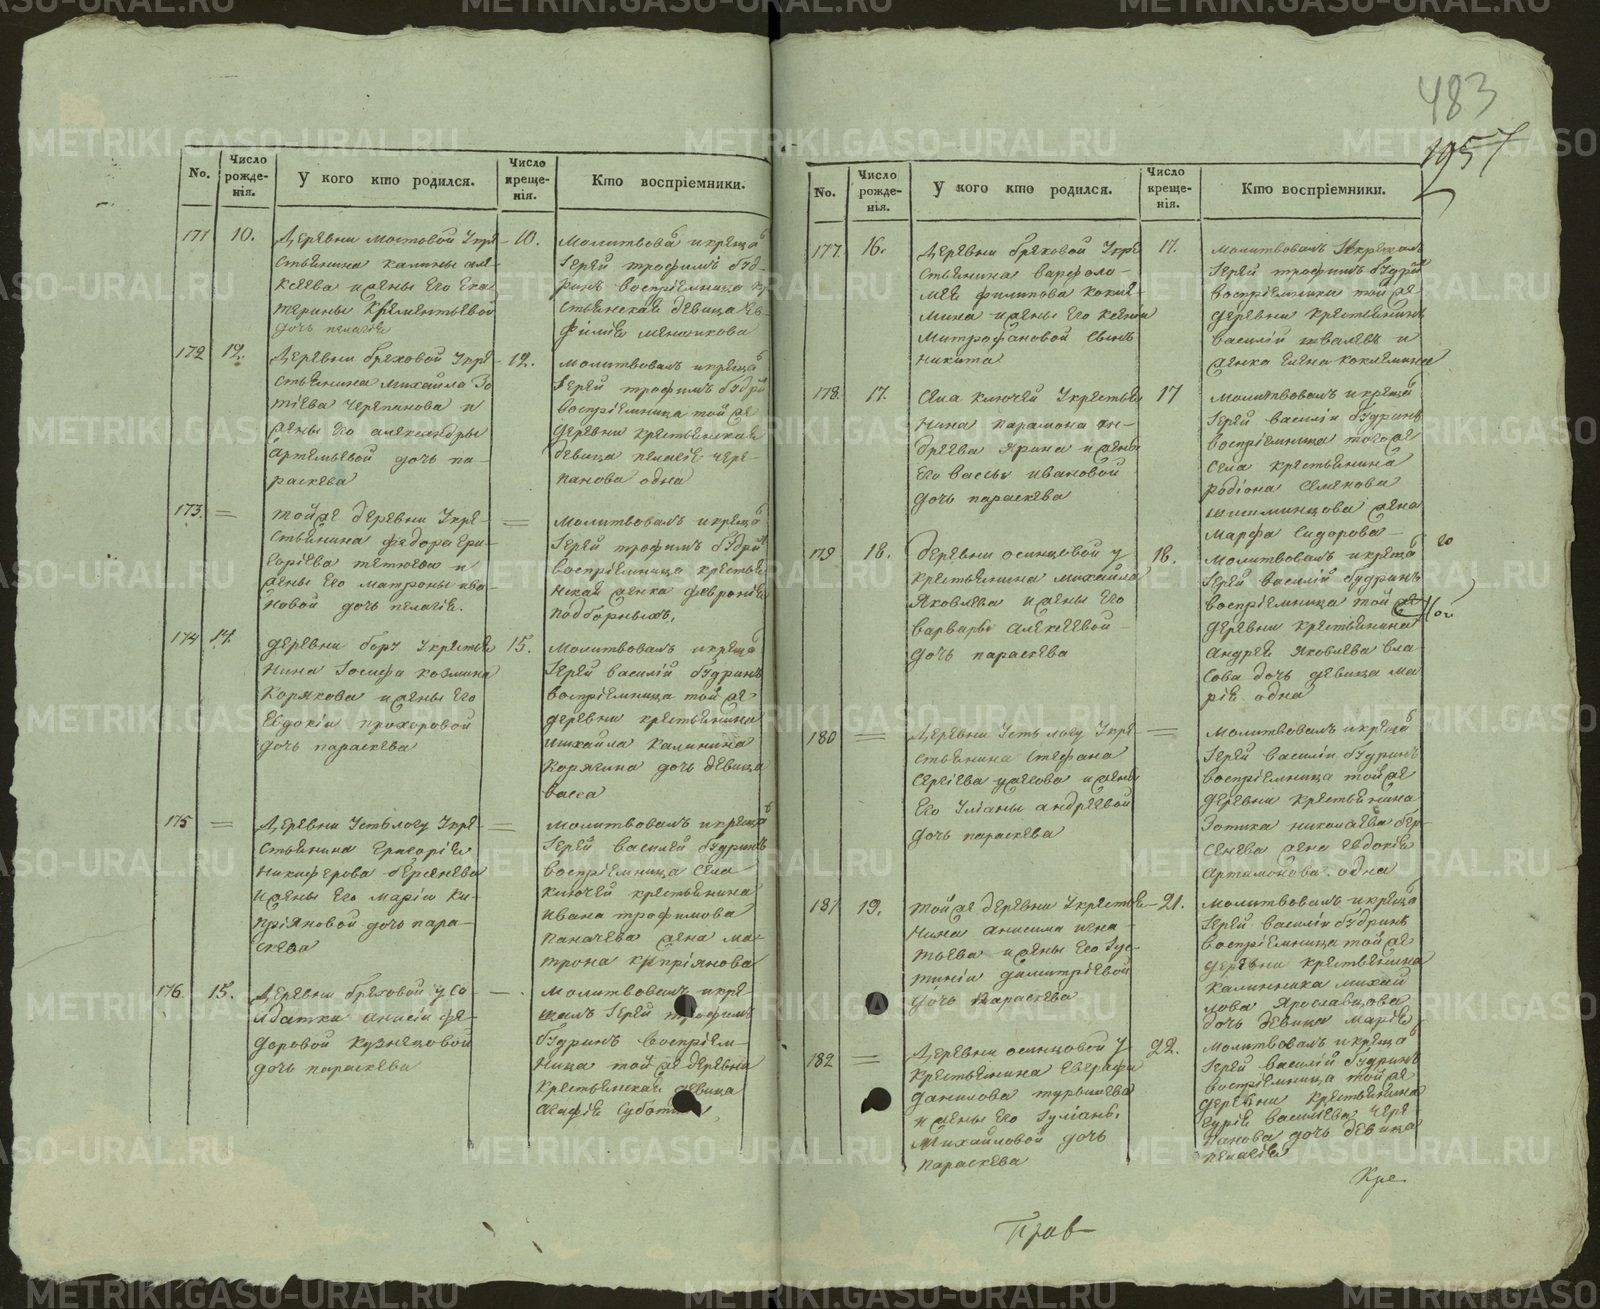 483
1957
No.
Число рожденія.
У кого кто родился.
Число крещенія.
Кто воспріемники.
171
10.
Деревни мостовой Укре-
стьянина калины але-
ксеева и жены его ека
терины Клементьевой
дочь пелагія
10.
Молитвова и креща
Іерей трофимъ буд-
ринъ воспріемница кр
стьянская девица ев-
фимія меншикова
172
12.
Деревни бреховой Укре-
стьянина михайла Зо
тіева черепанова и
жены его александры
артемьевой дочь па-
раскева
12.
молитвовалъ и креща
Іерей трофимъ будри
воспріемница той же
деревни крестьянская
девица пелагія чере-
панова одна
173.
той же деревни Укре-
стьянина федора гри-
горіева тетюева и
жены его матроны ива-
новой дочь пелагія.
молитвовалъ и креща
Іерей трофимъ будри
воспріемница крестья
нская женка февронія
подборныхъ,
174
14.
деревни бору Укрестья
нина Іосифа козмина
Корякова и жены его
Евдокіи прохоровой
дочь параскева
15.
Молитвовалъ и креща
Іерей василій будринъ
воспріемница той же
деревни крестьянина
михайла калинина
Корякина дочь девица
васса
175
Деревни Устьлогу Укре-
стьянина григорія
никифорова берсенева
и жены его маріи ки-
пріяновой дочь пара-
скева
молитвовалъ и креща
Іерей василей будринъ
воспріемница села
ключей крестьянина
ивана трофимова
паначева жена ма-
трона кипріянова
176.
15.
Деревни бреховой у со
лдатки анисіи фе-
доровой кузнецовой
дочь параскева
Молитвовалъ и кре-
щалъ Іерей трофимъ
будринъ воспріем-
ница той же деревни
крестьянская девица
агафія
No.
Число рожденія.
У кого кто родился.
Число крещенія.
Кто воспріемники.
177.
16.
Деревни бреховой Укре
стьянина варфоло-
мея филипова кокше-
мина и жены его ксении
митрофановой сынъ
никита
17.
молитвовалъ и крещалъ
Іерей трофимъ будри
воспріемники той же
деревни крестьянинъ
василій и
женка елена
178.
17.
Села ключей Укрестья
нина парамона ан-
дреева ярина и жены
его вассы ивановой
дочь параскева
17
Молитвовалъ и креща
Іерей василіи будринъ
воспріемница того же
села крестьянина
родіона семенова
шишминцова жена
марфа сидорова
179
18.
Деревни осинцовой у
крестьянина михайла
яковлева и жены его
варвары алексеевой
дочь параскева
18.
Молитвовалъ и креща
Іерей василій будринъ
воспріемница той же
деревни крестьянина
андрея яковлева вла
сова дочь девица ма
рія одна
180
Деревни Устьлогу Укре
стьянина стефана
сергіева и жены
его Улианы андреевой
дочь параскева
Молитвовалъ и креща
Іерей василіи будринъ
воспріемница той же
деревни крестьянина
Зотика николаева бер-
сенева жена евдокія
артамонова одна
181
19.
той же деревни Укрестья
нина анисима игна-
тьева и жены его Іус-
тиніи димитріевой
дочь параскева
21.
молитвовалъ и креща
Іерей василіи будринъ
воспріемница той же
деревни крестьянина
калинника михай
лова ярославцова
дочь девица марія
182
Деревни осинцовой у
крестьянина евграфа
данилова турышева
и жены его Іуліаны
михайловой дочь
параскева
22.
молитвовалъ и креща
Іерей василій будринъ
воспріемница той же
деревни крестьянина
гурія василева чере
панова дочь девица
пелагія
Кре
Прав